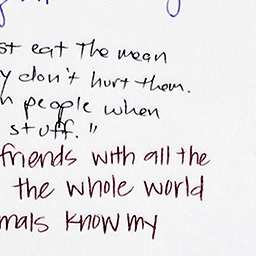 st eat The mean
y don't hurt them.
n people when
stuff."
friends with all the
the whole world
mals know my